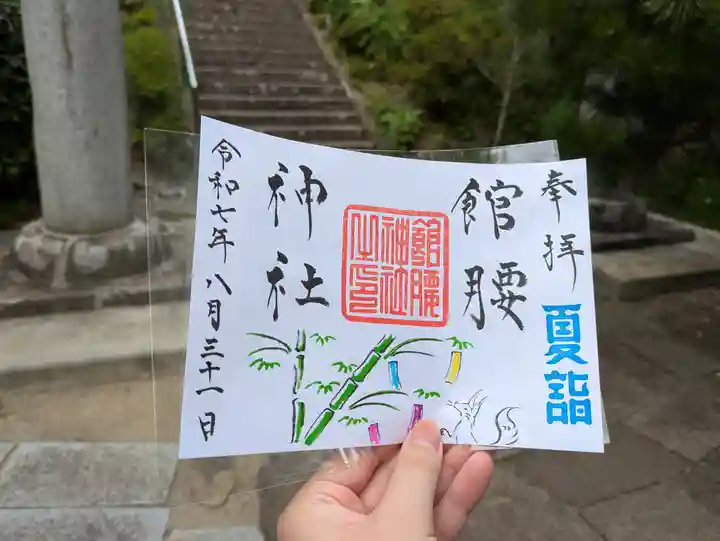 奉拝
夏詣
館腰
神社
館腰
神社
之印
令和七年八月三十一日